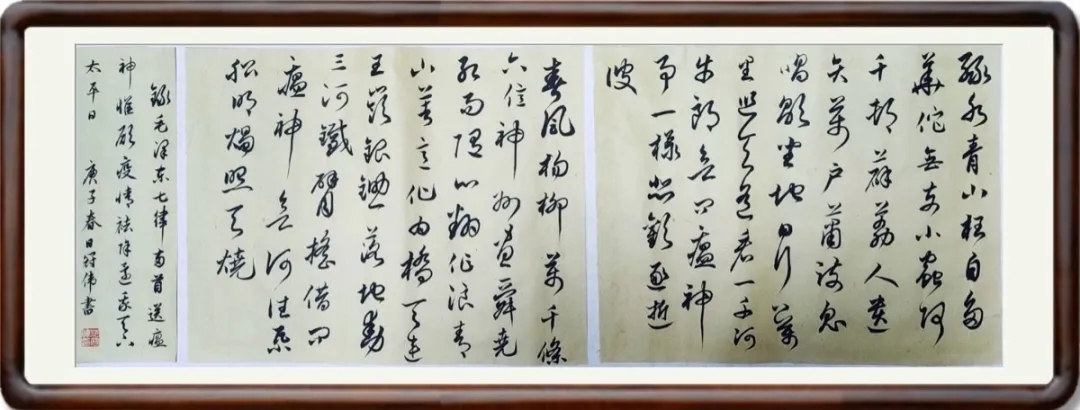 綠水青山枉自多
華佗無奈小蟲何
千村薜荔人遺
矢萬戶蕭疏鬼
唱歌坐地日行八萬
里巡天遙看一千河
牛郎欲問瘟神
事一樣悲歡逐逝
波
春風楊柳萬千條
六億神州盡舜堯
紅雨隨心翻作浪青
山著意化為橋天連
五嶺銀鋤落地動
三河鐵臂搖借問
瘟神欲何往紙
船明燭照天燒
錄毛澤東七律两首送瘟
神惟願疫情祛除還我天下
太平日 庚子春日冠偉書